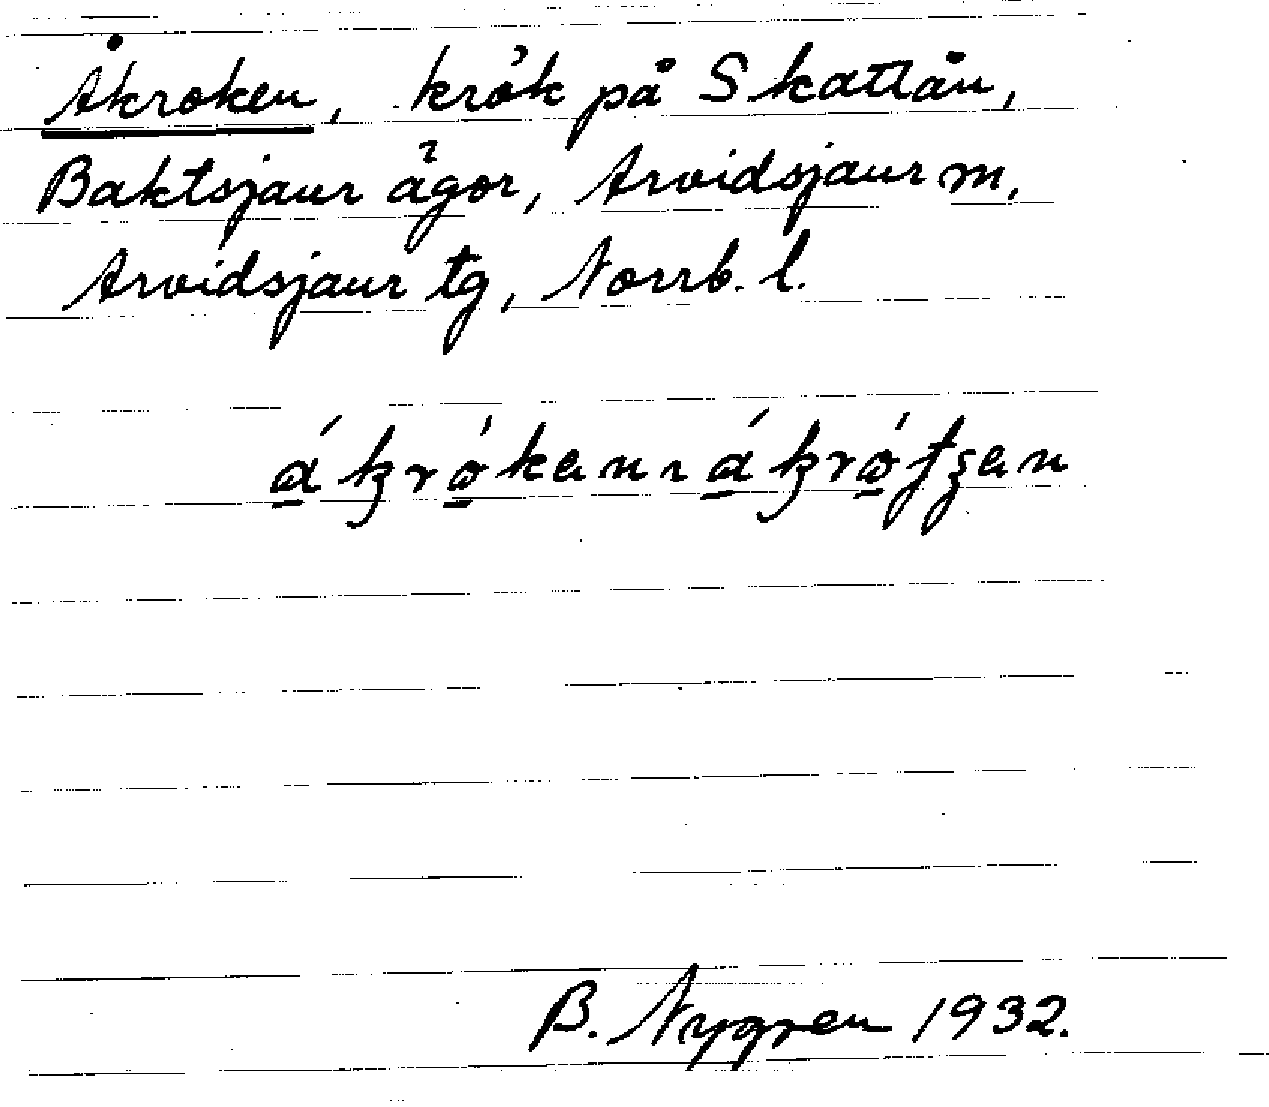 Åkroken, krök på Skatlån,
Baktsjaur ägor, Arvidsjaur m,
Arvidsjaur tg, Norrb. l.
B. Nygren 1932.